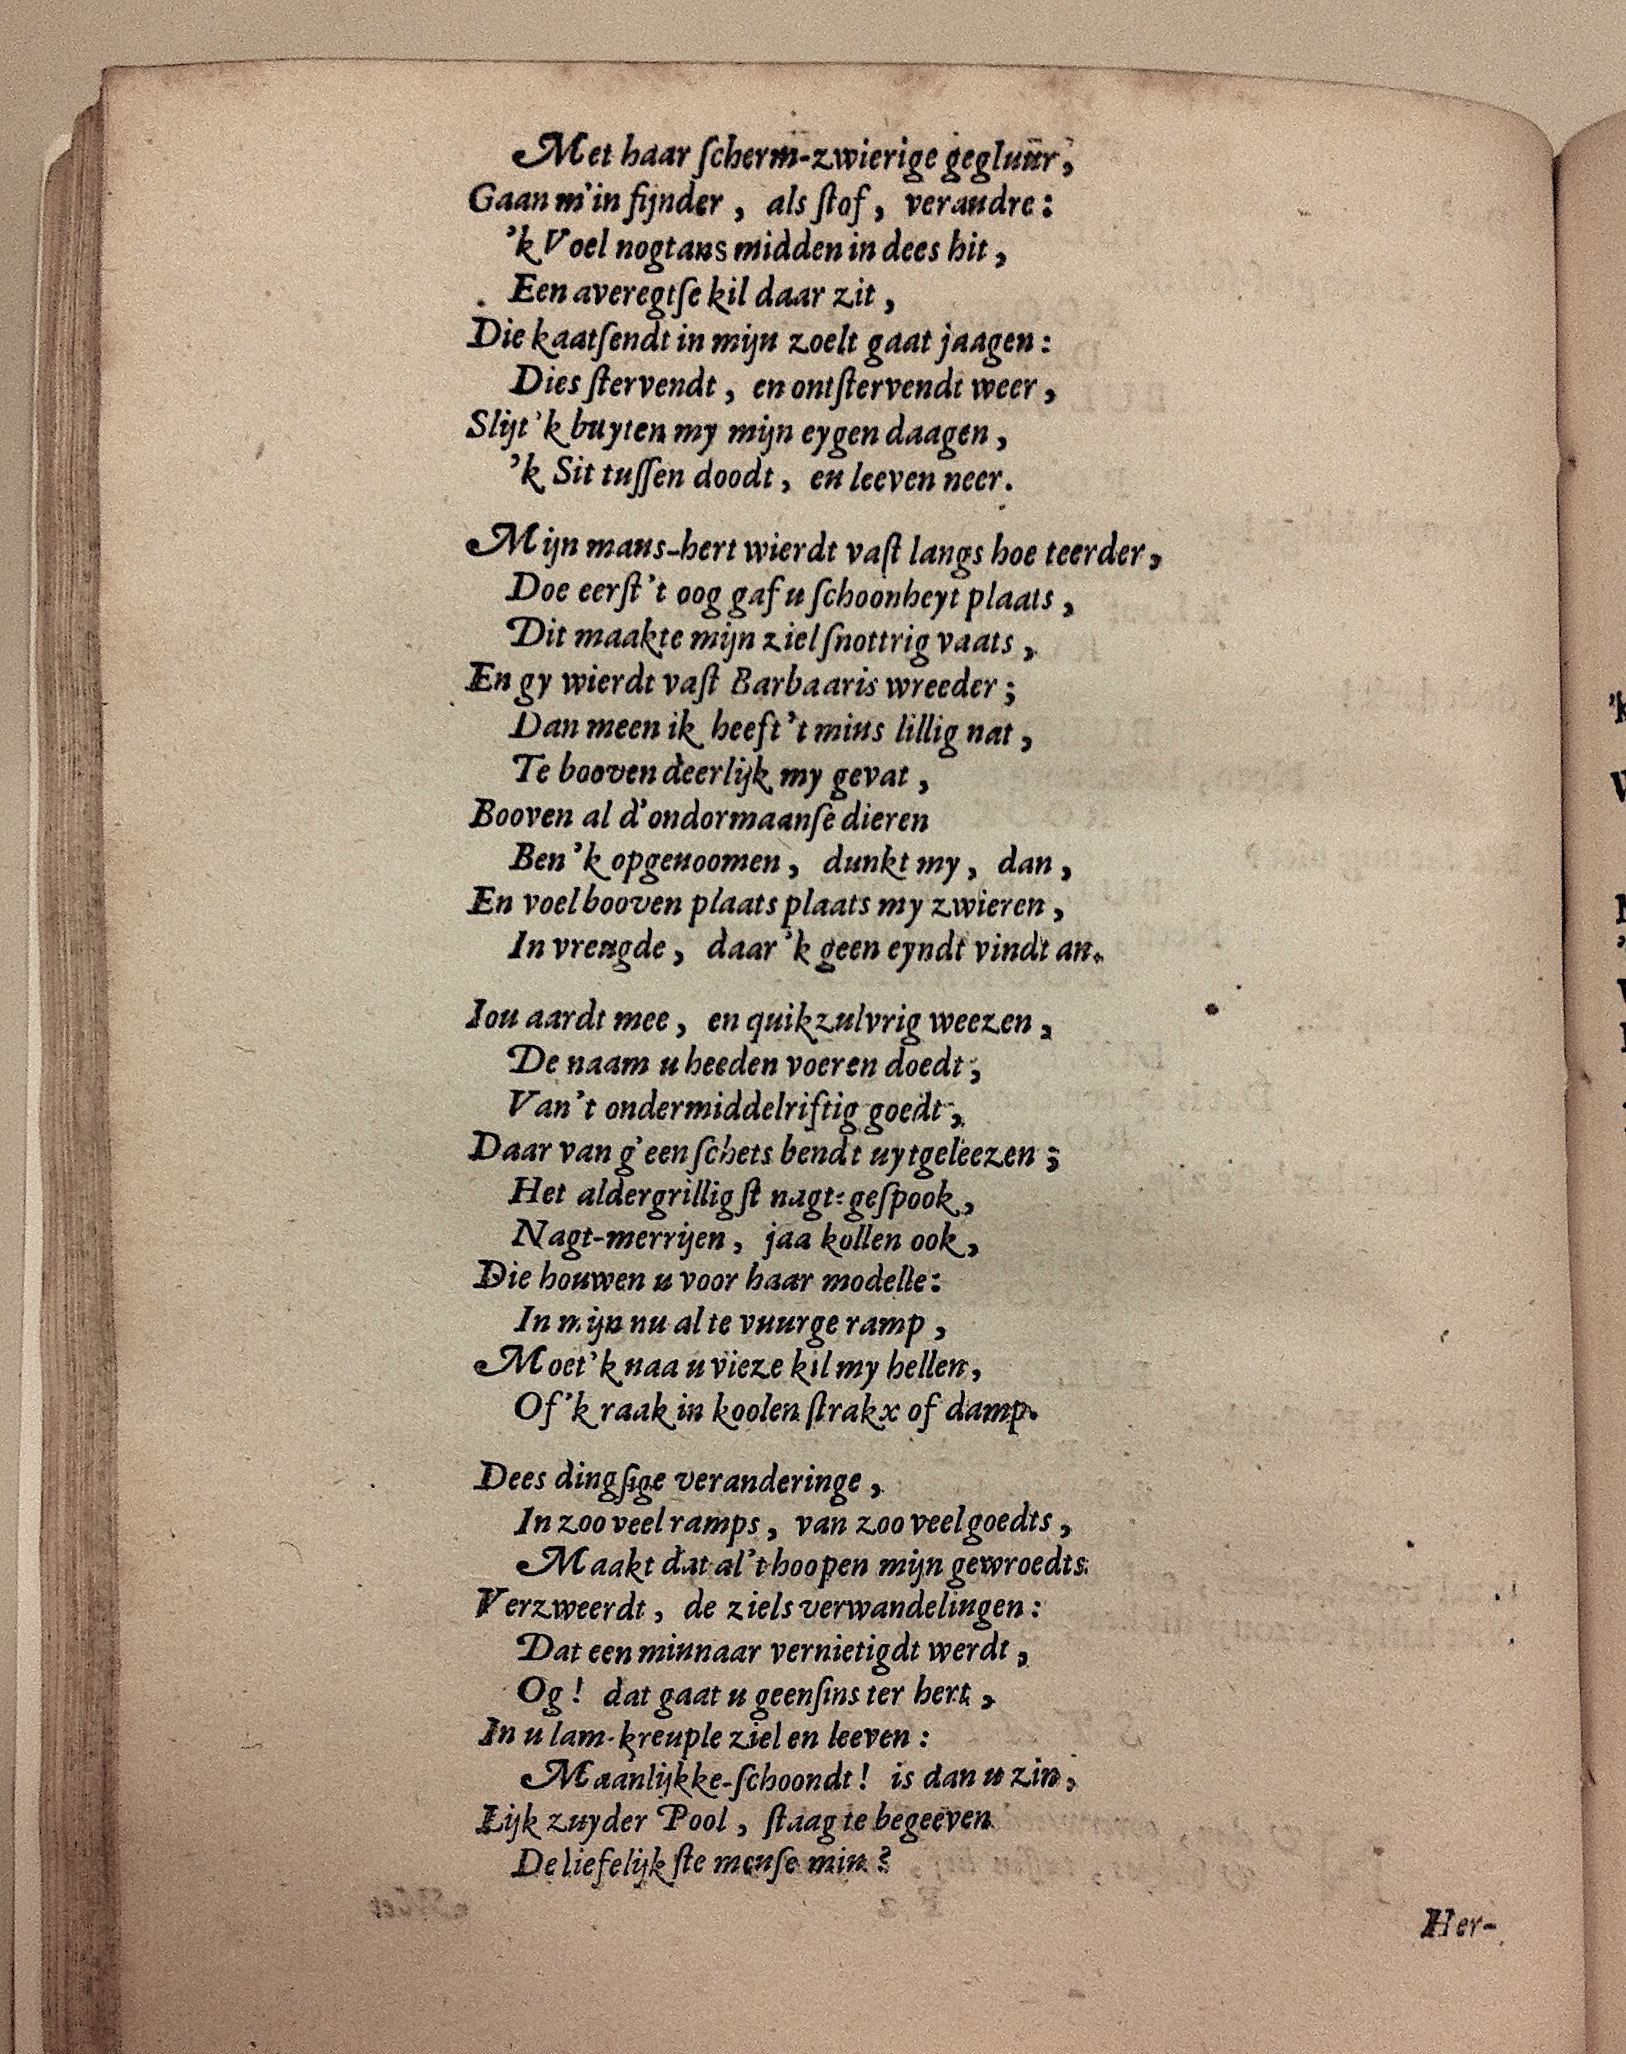 Met haar ſcherm-zwierige gegluur,
Gaan m'in fijnder, als ſtof, verandre:
'k Voel nogtans midden in dees hit,
Een averegtſe kil daar zit,
Die kaatſendt in mijn zoelt gaat jaagen:
Dies ſtervendt, en ontſtervendt weer,
Slijt 'k buyten my mijn eygen daagen,
'k Sit tuſſen doodt, en leeven neer.
Mijn mans-hert wierdt vaſt langs hoe teerder,
Doe eerſt 't oog gaf u ſchoonheyt plaats,
Dit maakte mijn ziel ſnottrig vaats,
En gy wierdt vaſt Barbaaris wreeder;
Dan meen ik heeft 't mins lillig nat,
Te booven deerlijk my gevat,
Booven al d'ondormaanſe dieren
Ben 'k opgenoomen, dunkt my, dan,
En voel booven plaats plaats my zwieren,
In vreugde, daar 'k geen eyndt vindt an.
Iou aardt mee, en quikzulvrig weezen,
De naam u heeden voeren doedt,
Van 't ondermiddelriftig goedt,
Daar van g'een ſchets bendt uytgeleezen;
Het aldergrilligſt nagt-geſpook,
Nagt-merrijen, jaa kollen ook,
Die houwen u voor haar modelle:
In mijn nu al te vuurge ramp,
Moet 'k naa u vieze kil my hellen,
Of 'k raak in koolen ſtrakx of damp.
Dees dingſige veranderinge,
In zoo veel ramps, van zoo veel goedts,
Maakt dat al 't hoopen mijn gewroedts
Verzweerdt, de ziels verwandelingen:
Dat een minnaar vernietigdt werdt,
Og! dat gaat u geenſins ter hert,
In u lam-kreuple ziel en leeven:
Maanlijkke-ſchoondt! is dan u zin,
Lijk zuyder Pool, ſtaag te begeeven
De liefelijkſte menſe min?
Her-